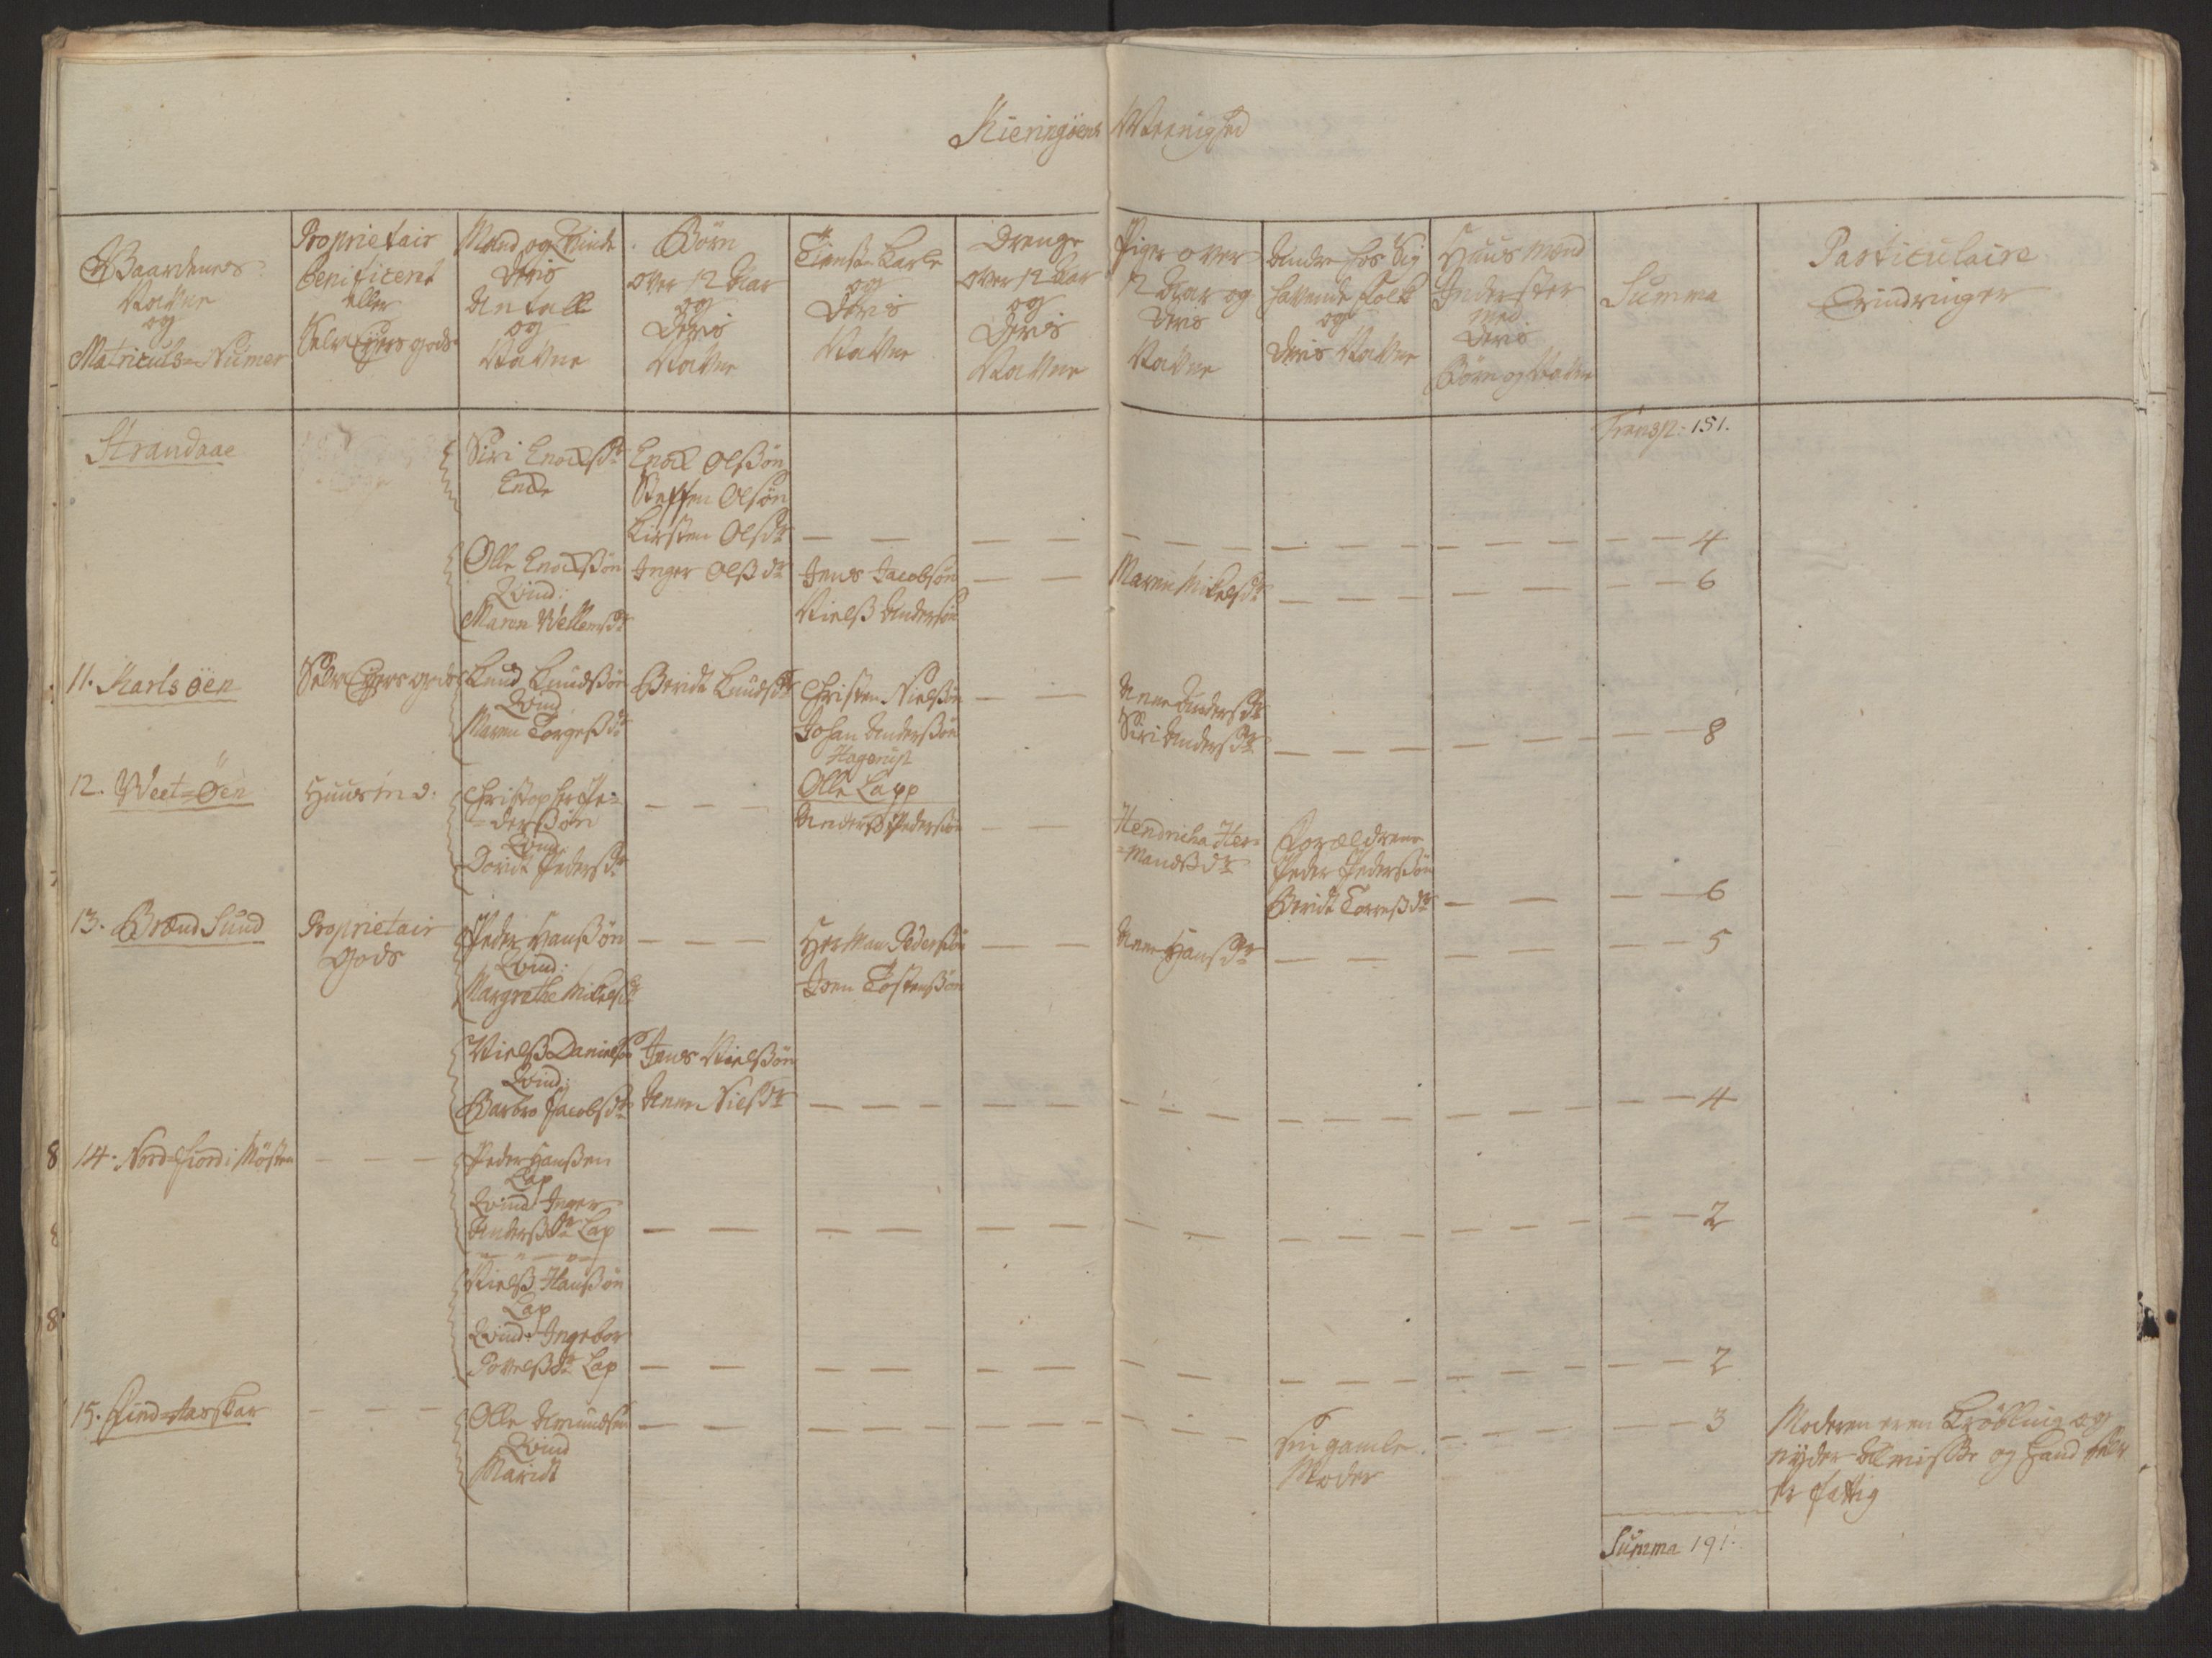 Kieringöens Meenighed
Gaardenes
Navne
og
Matriculs=Numer
Proprietair
Benificeret
eller
Selv Eyer gods
Mand og Qvinde
Deris
Antall
og
Navne
Börn
over 12 Aar
og
Deris
Navne
Tieniste Karle
og
Deris
Navne
Drenge
over 12 Aar
og
Deris
Navne
Piger over
12 Aar og
Deris
Navne
Andre hos Sig
havende Folk
og
Deris Navne
Huus Mænd
Inderster
med
Deris
Börn og Navne
Summa
Particulaire
Erindringer
Transp: 151.
Strandaae
Siri Enochsdr
Encke
Enoch Olsön
Steffen Olsön
Kirsten Olsdr
— — — — — — 4
Olle Enochsön
Qvind:
Maren Wellemsdr
Inger Olsdr
Jens Jacobsön
Niels Andersön
Maren Mikelsdr
6
11. Karlsöen
Selv Eyers gods
Knud Knudsön
Qvind
Maren Torgersdr
Beridt Knudsdr
Christen Nielsön
Johan Andersön
Hagerup
Olle Lapp
Anne Andersdr
Siri Andersdr
8
12. Weet=Öen
Huusmd:
Christopher Pe=
=dersön
Qvind:
Doridt Pedersdr
Anders Pedersön
Hendricha Her=
=mandsdr
Forældrene
Peder Pedersön
Beridt Torresdr
6
13. Brend Sund
Proprietair
gods
Peder Hansön
Qvind:
Margrethe Mikelsdr
Herman Pedersön
Iven Tostensön
Anne Hansdr
5
Niels Danielsön
Qvind:
Barbro Jacobsdr
Jens Nielsön
Anne Nielsdr
4
14. Nord=fiord i Mösten
Peder Hansen
Lap
Qvind: Inger
Andersdr Lap
2
Niels Hansön
Lap
Qvind: Ingebor
Povelsdr Lap
2
15. Find=Aasskar
Olle Amundsön
Qvind
Maridt
Sin gamle
Moder
3
Moderen er en Kröbling og
nyder Almisse og hand selv
er fattig
Summa 191.
8
8
8